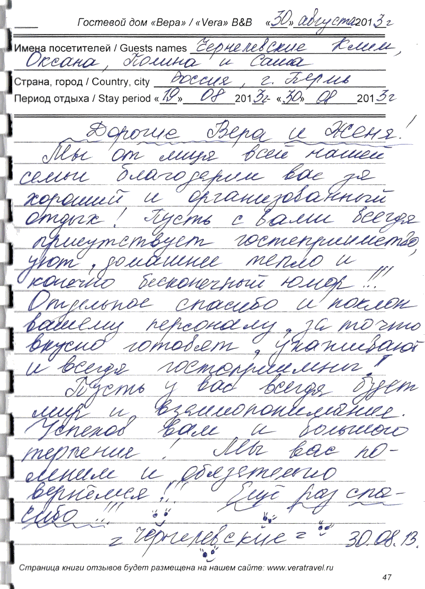 Гостевой дом «Вера» / «Vera» B&B «30» августа 2013 г
Имена посетителей / Guests names Чернелевские Клим,
Оксана, Полина и Саша
Страна, город / Country, city Россия, г. Пермь
Период отдыха / Stay period «19» 08 2013 г - «30» 08 2013 г
Дорогие Вера и Женя!
Мы от лица всей нашей
семьи благодарим вас за
хороший и организованный
отдых! Пусть с вами всегда
присутствует гостеприимство,
уют, домашнее тепло и
конечно бесконечный юмор!!!
Отдельное спасибо и поклон
вашему персоналу, за то что
вкусно готовят, ухаживают
и всегда гостеприимны!
Пусть у вас всегда будет
мир и взаимопонимание.
Успехов вам и большого
терпения! Мы вас по-
мним и обязательно
вернёмся!!! Ещё раз спа-
сибо!!!
Чернелевские 30.08.13.
Страница книги отзывов будет размещена на нашем сайте: www.veratravel.ru
47